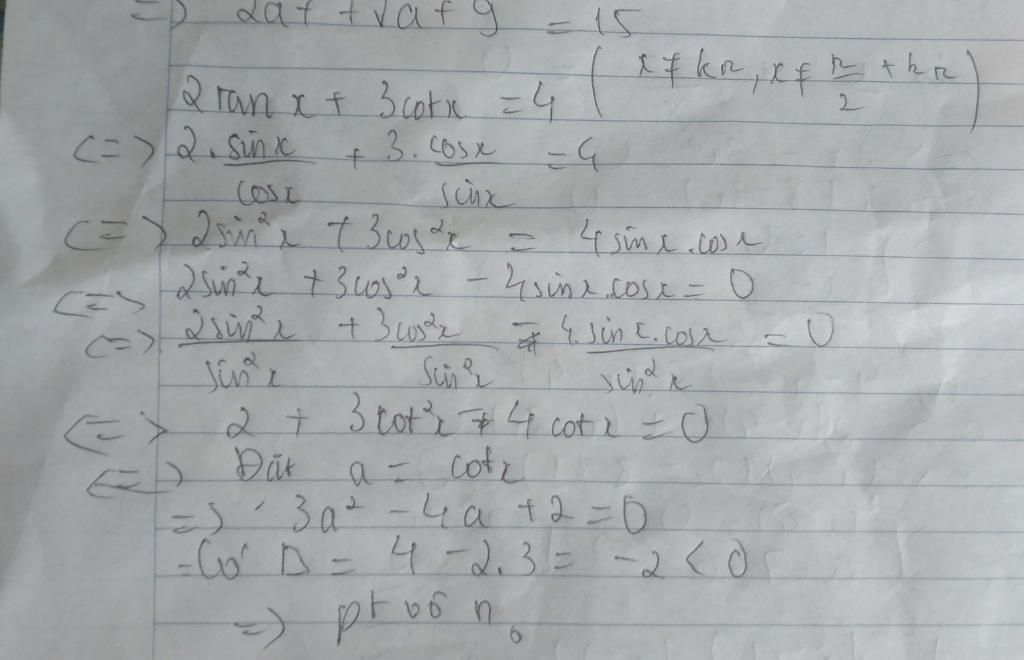 => 2a² + 7a + 9 = 15
2 tan x + 3 cotx = 4 ( x ≠ kπ, x ≠ π/2 + kπ )
<=> 2. sinx/cosx + 3. cosx/sinx = 4
<=> 2sin²x + 3cos²x = 4 sinx.cosx
<=> 2sin²x + 3cos²x - 4sinx.cosx = 0
<=> 2sin²x/sin²x + 3cos²x/sin²x - 4.sinx.cosx/sin²x = 0
<=> 2 + 3 cot²x - 4 cotx = 0
<=> Đặt a = cotx
=> 3a² - 4a + 2 = 0
=> Có Δ = 4 - 2.3 = -2 < 0
=> pt vô n₀